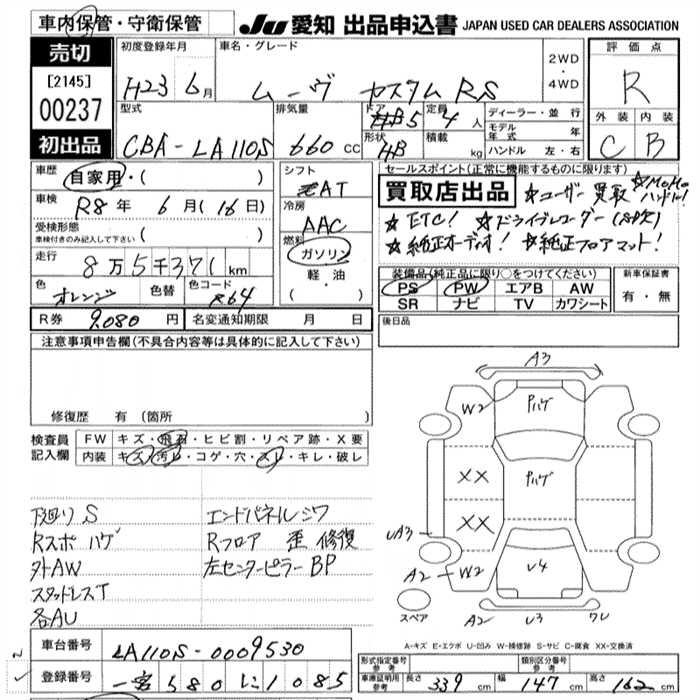 車内保管・守衛保管
JU 愛知 出品申込書 JAPAN USED CAR DEALERS ASSOCIATION
売切
[2145]
00237
初出品
初度登録年月
H23 6月
車名・グレード
ムーヴ カスタム RS
2WD
・
4WD
評価点
R
外装 内装
C B
型式
CBA-LA110S
排気量
660 cc
ドア
5
形状
HB
定員
4人
積載
kg
ディーラー・並行
モデル年式 年
ハンドル 左・右
車歴
自家用・( )
車検
R8年 6月(16日)
受検形態
車検付きのみ記入して下さい ( )
走行
8万5千371km
色
オレンジ
色替
色コード
R64
シフト
AT
冷房
AAC
燃料
ガソリン
軽・油
・( )
セールスポイント(正常に機能するものに限ります)
買取店出品
☆ユーザー買取 ☆MOMOハンドル!
☆ETC! ☆ドライブレコーダー
☆純正オーディオ! ☆純正フロアマット!
装備品(純正品に限り○をつけてください)
PS PW エアB AW
SR ナビ TV カワシート
新車保証書
有・無
R券 9,080円 名変通知期限 月 日
後日品
注意事項申告欄(不具合内容等は具体的に記入して下さい)
修復歴 有(箇所 )
検査員記入欄
FW キズ・飛石・ヒビ割・リペア跡・X要
内装 キズ・汚レ・コゲ・穴・スレ・キレ・破レ
下廻りS エンドパネルシワ
Rスポハゲ Rフロア 歪 修復
外AW 左センターピラーBP
スタッドレスT
各AU
A3
W2
Pハゲ
XX
Pハゲ
XX
UA3
A2 W2
U4
スペア
A2 U3 ワレ
A-キズ E-エクボ U-凹み W-補修跡 S-サビ C-腐食 XX-交換済
車台番号 LA110S-0009530
登録番号 580 に 1085
形式指定番号 参考
類別区分番号 参考
車庫証明用 参考 長さ 339cm 幅 147cm 高さ 162cm